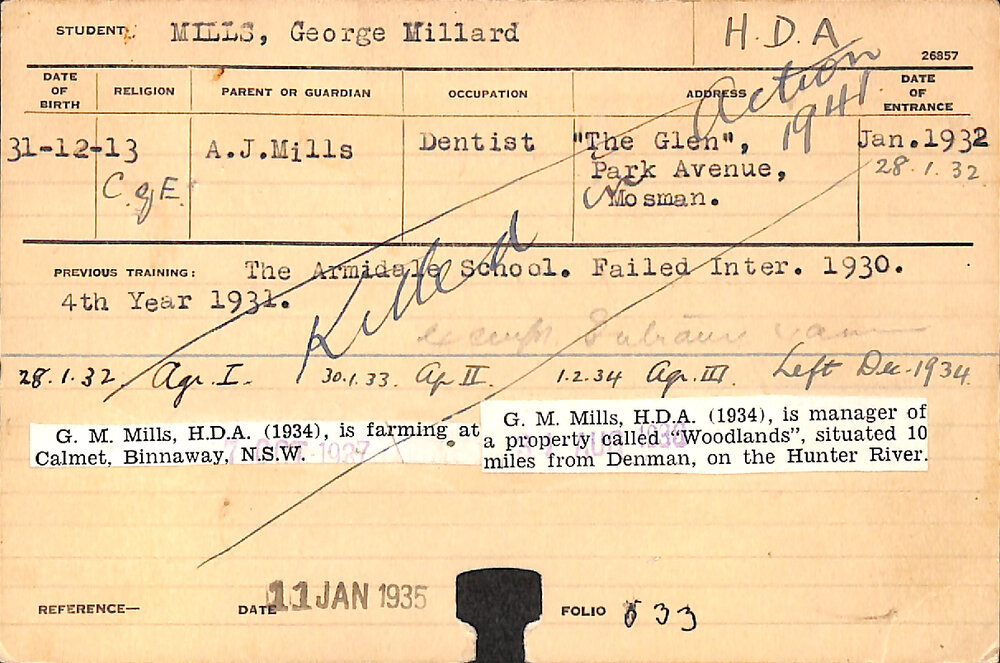 STUDENT: MILLS, George Millard
H.D.A
26857
DATE OF BIRTH
RELIGION
PARENT OR GUARDIAN
OCCUPATION
ADDRESS
DATE OF ENTRANCE
31-12-13
C of E.
A.J.Mills
Dentist
"The Glen",
Park Avenue,
Mosman.
Jan.1932
28.1.32
Killed in Action
1941
PREVIOUS TRAINING: The Armidale School. Failed Inter. 1930.
4th Year 1931.
28.1.32. Agr. I. 30.1.33. Ag II. 1.2.34 Agr. III. Left Dec. 1934.
G. M. Mills, H.D.A. (1934), is farming at
Calmet, Binnaway, N.S.W.
1937
G. M. Mills, H.D.A. (1934), is manager of
a property called "Woodlands", situated 10
miles from Denman, on the Hunter River.
REFERENCE—
DATE 11 JAN 1935
FOLIO 533